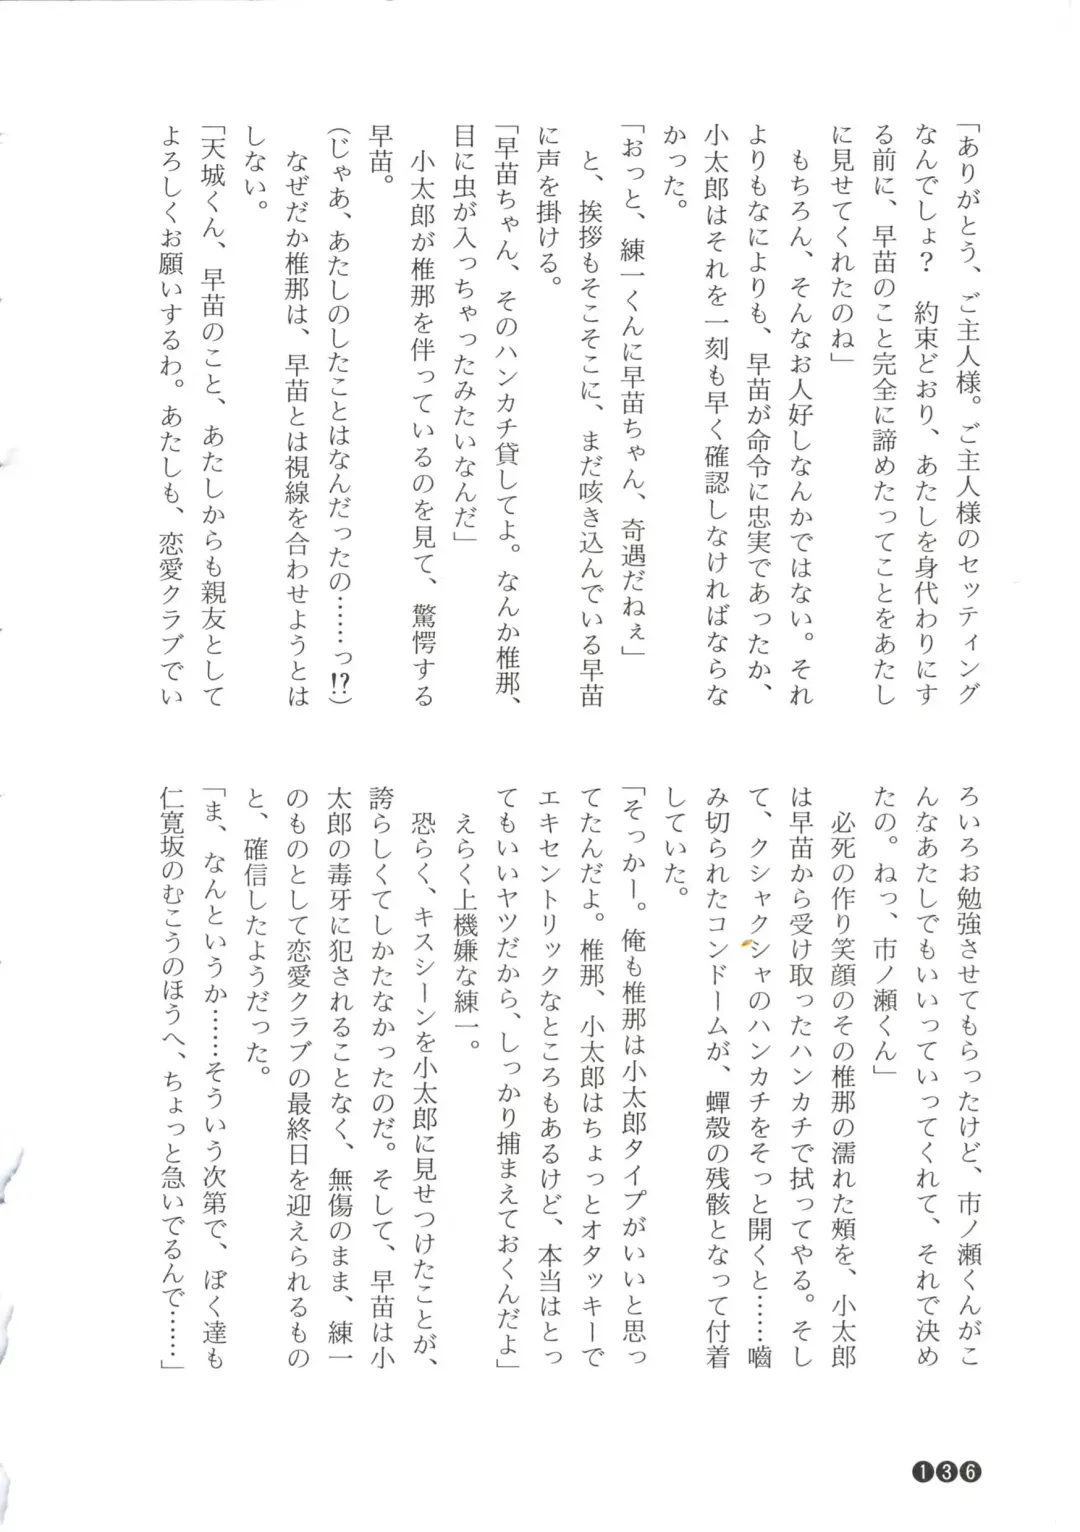 「ありがとう、ご主人様。ご主人様のセッティング
なんでしょ？　約束どおり、あたしを身代わりにす
る前に、早苗のこと完全に諦めたってことをあたし
に見せてくれたのね」
　もちろん、そんなお人好しなんかではない。それ
よりもなによりも、早苗が命令に忠実であったか、
小太郎はそれを一刻も早く確認しなければならな
かった。
「おっと、練一くんに早苗ちゃん、奇遇だねぇ」
　と、挨拶もそこそこに、まだ咳き込んでいる早苗
に声を掛ける。
「早苗ちゃん、そのハンカチ貸してよ。なんか椎那、
目に虫が入っちゃったみたいなんだ」
　小太郎が椎那を伴っているのを見て、驚愕する
早苗。
（じゃあ、あたしのしたことはなんだったの……っ!?）
　なぜだか椎那は、早苗とは視線を合わせようとは
しない。
「天城くん、早苗のこと、あたしからも親友として
よろしくお願いするわ。あたしも、恋愛クラブでい
ろいろお勉強させてもらったけど、市ノ瀬くんがこ
んなあたしでもいいっていってくれて、それで決め
たの。ねっ、市ノ瀬くん」
　必死の作り笑顔のその椎那の濡れた頬を、小太郎
は早苗から受け取ったハンカチで拭ってやる。そし
て、クシャクシャのハンカチをそっと開くと……嚙
み切られたコンドームが、蟬殻の残骸となって付着
していた。
「そっかー。俺も椎那は小太郎タイプがいいと思っ
てたんだよ。椎那、小太郎はちょっとオタッキーで
エキセントリックなところもあるけど、本当はとっ
てもいいヤツだから、しっかり捕まえておくんだよ」
　えらく上機嫌な練一。
　恐らく、キスシーンを小太郎に見せつけたことが、
誇らしくてしかたなかったのだ。そして、早苗は小
太郎の毒牙に犯されることなく、無傷のまま、練一
のものとして恋愛クラブの最終日を迎えられるもの
と、確信したようだった。
「ま、なんというか……そういう次第で、ぼく達も
仁寛坂のむこうのほうへ、ちょっと急いでるんで……」
136